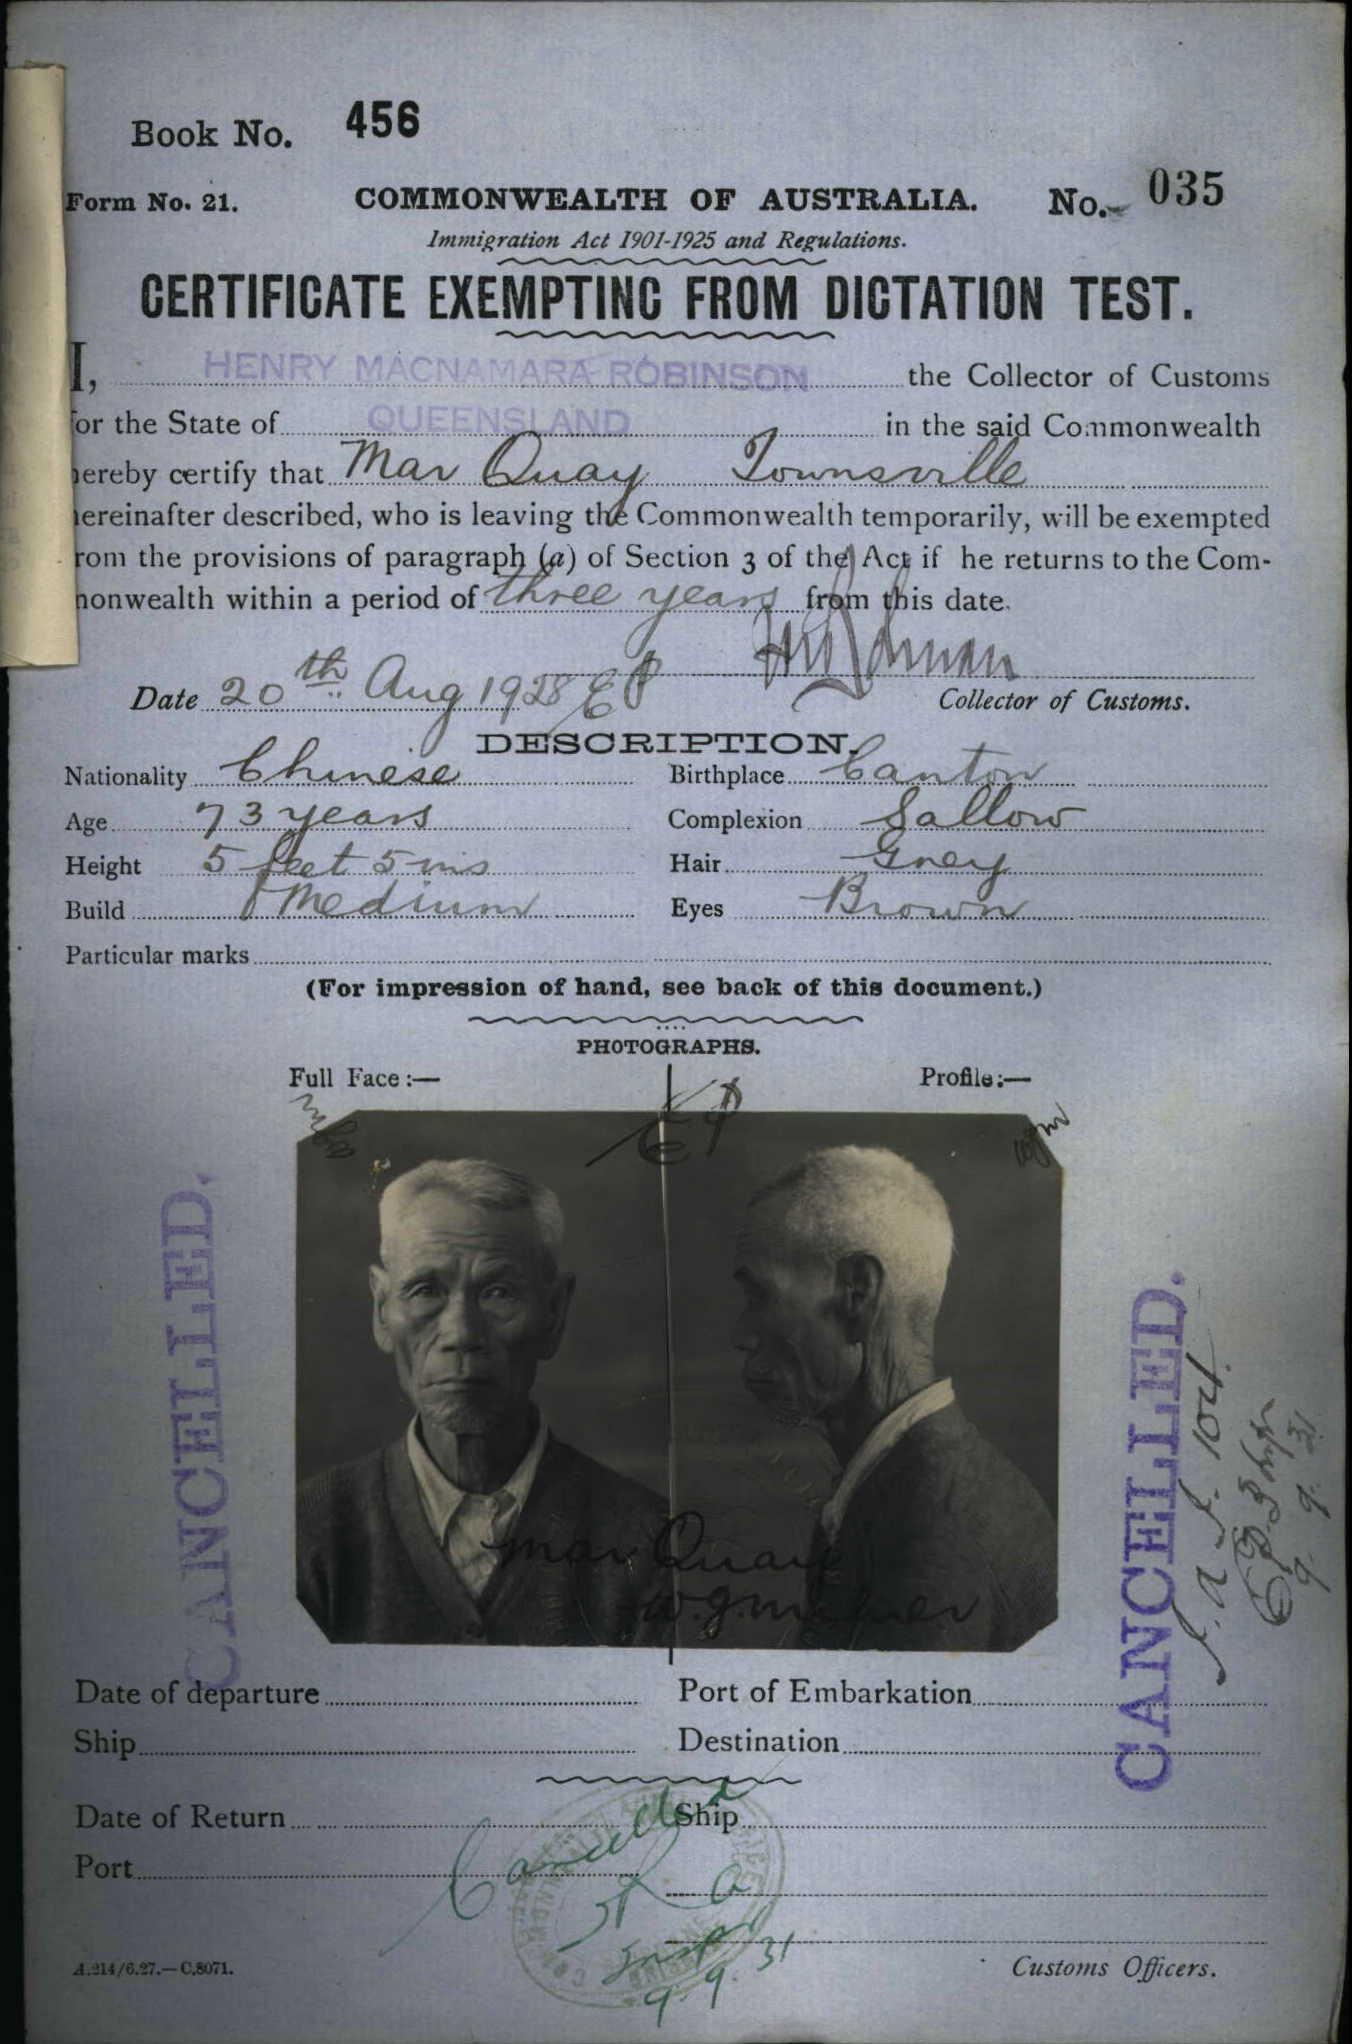 Book No. 456
Form No. 21. COMMONWEALTH OF AUSTRALIA. No. 035
Immigration Act 1901-1925 and Regulations.
CERTIFICATE EXEMPTING FROM DICTATION TEST.
I, HENRY MACNAMARA ROBINSON the Collector of Customs
for the State of QUEENSLAND in the said Commonwealth
hereby certify that Mar Quay Townsville
hereinafter described, who is leaving the Commonwealth temporarily, will be exempted
from the provisions of paragraph (a) of Section 3 of the Act if he returns to the Com-
monwealth within a period of three years from this date.
Date 20th Aug 1928 Collector of Customs.
DESCRIPTION.
Nationality Chinese Birthplace Canton
Age 73 years Complexion Sallow
Height 5 feet 5 ins Hair Grey
Build Medium Eyes Brown
Particular marks
(For impression of hand, see back of this document.)
PHOTOGRAPHS.
Full Face:— Profile:—
Mar Quay
CANCELLED.
CANCELLED.
9. 9. 31
Date of departure Port of Embarkation
Ship Destination
Date of Return Ship
Port
Cancelled
9. 9. 31
A.214/6.27.—C.8071. Customs Officers.